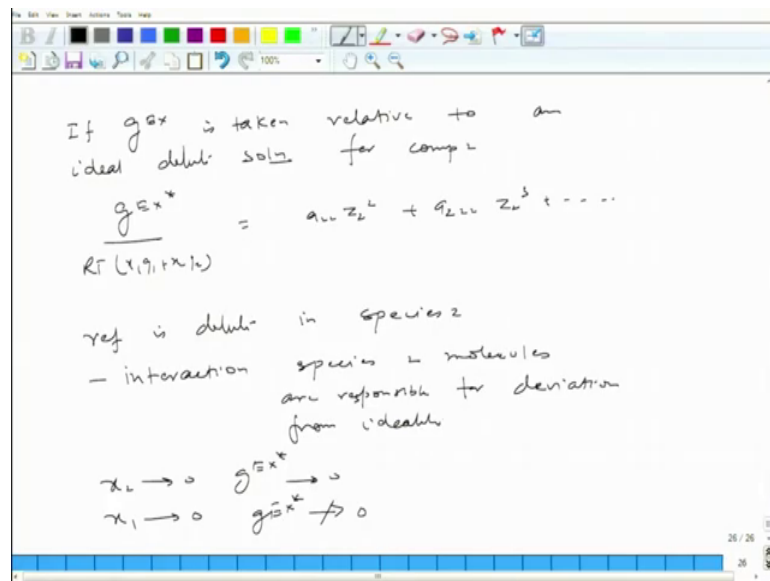 File Edit View Insert Actions Tools Help
100%
If g^{Ex} is taken relative to an
ideal dilute soln for comp 2
g^{Ex*} / RT (x₁q₁ + x₂q₂) = a₂₂ z₂² + a₂₂₂ z₂³ + ....
ref is dilute in species 2
- interaction species 2 molecules
are responsible for deviation
from ideality
x₂ → 0 g^{Ex*} → 0
x₁ → 0 g^{Ex*} ↛ 0
26 / 26
26